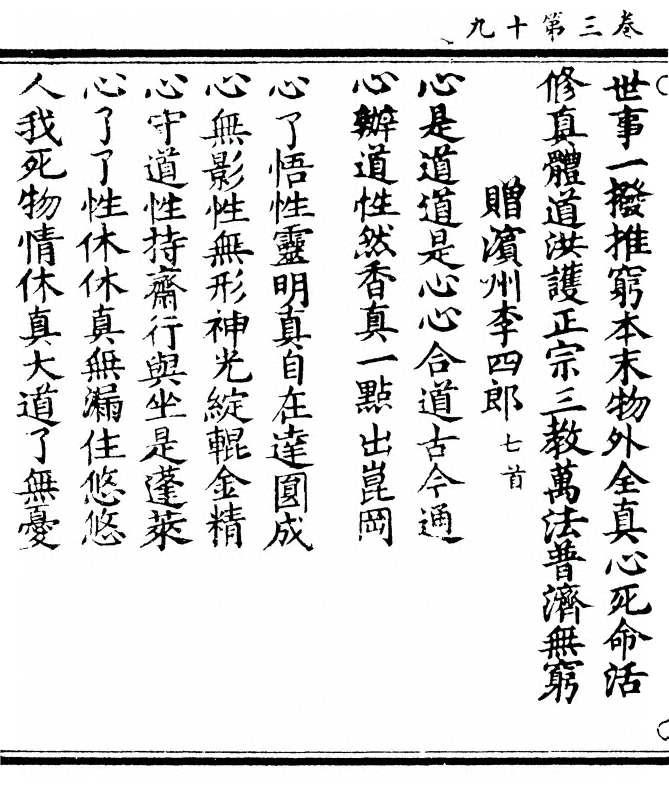 卷三第十九
世事一撥推窮本末物外全真心死命活
修真體道洪護正宗三教萬法普濟無窮
贈濱州李四郎七首
心是道道是心心合道古今通
心辦道性然香真一點出崑岡
心了悟性靈明真自在達圓成
心無影性無形神光綻輥金精
心守道性持齋行與坐是蓬萊
心了了性休休真無漏住悠悠
人我死物情休真大道了無憂